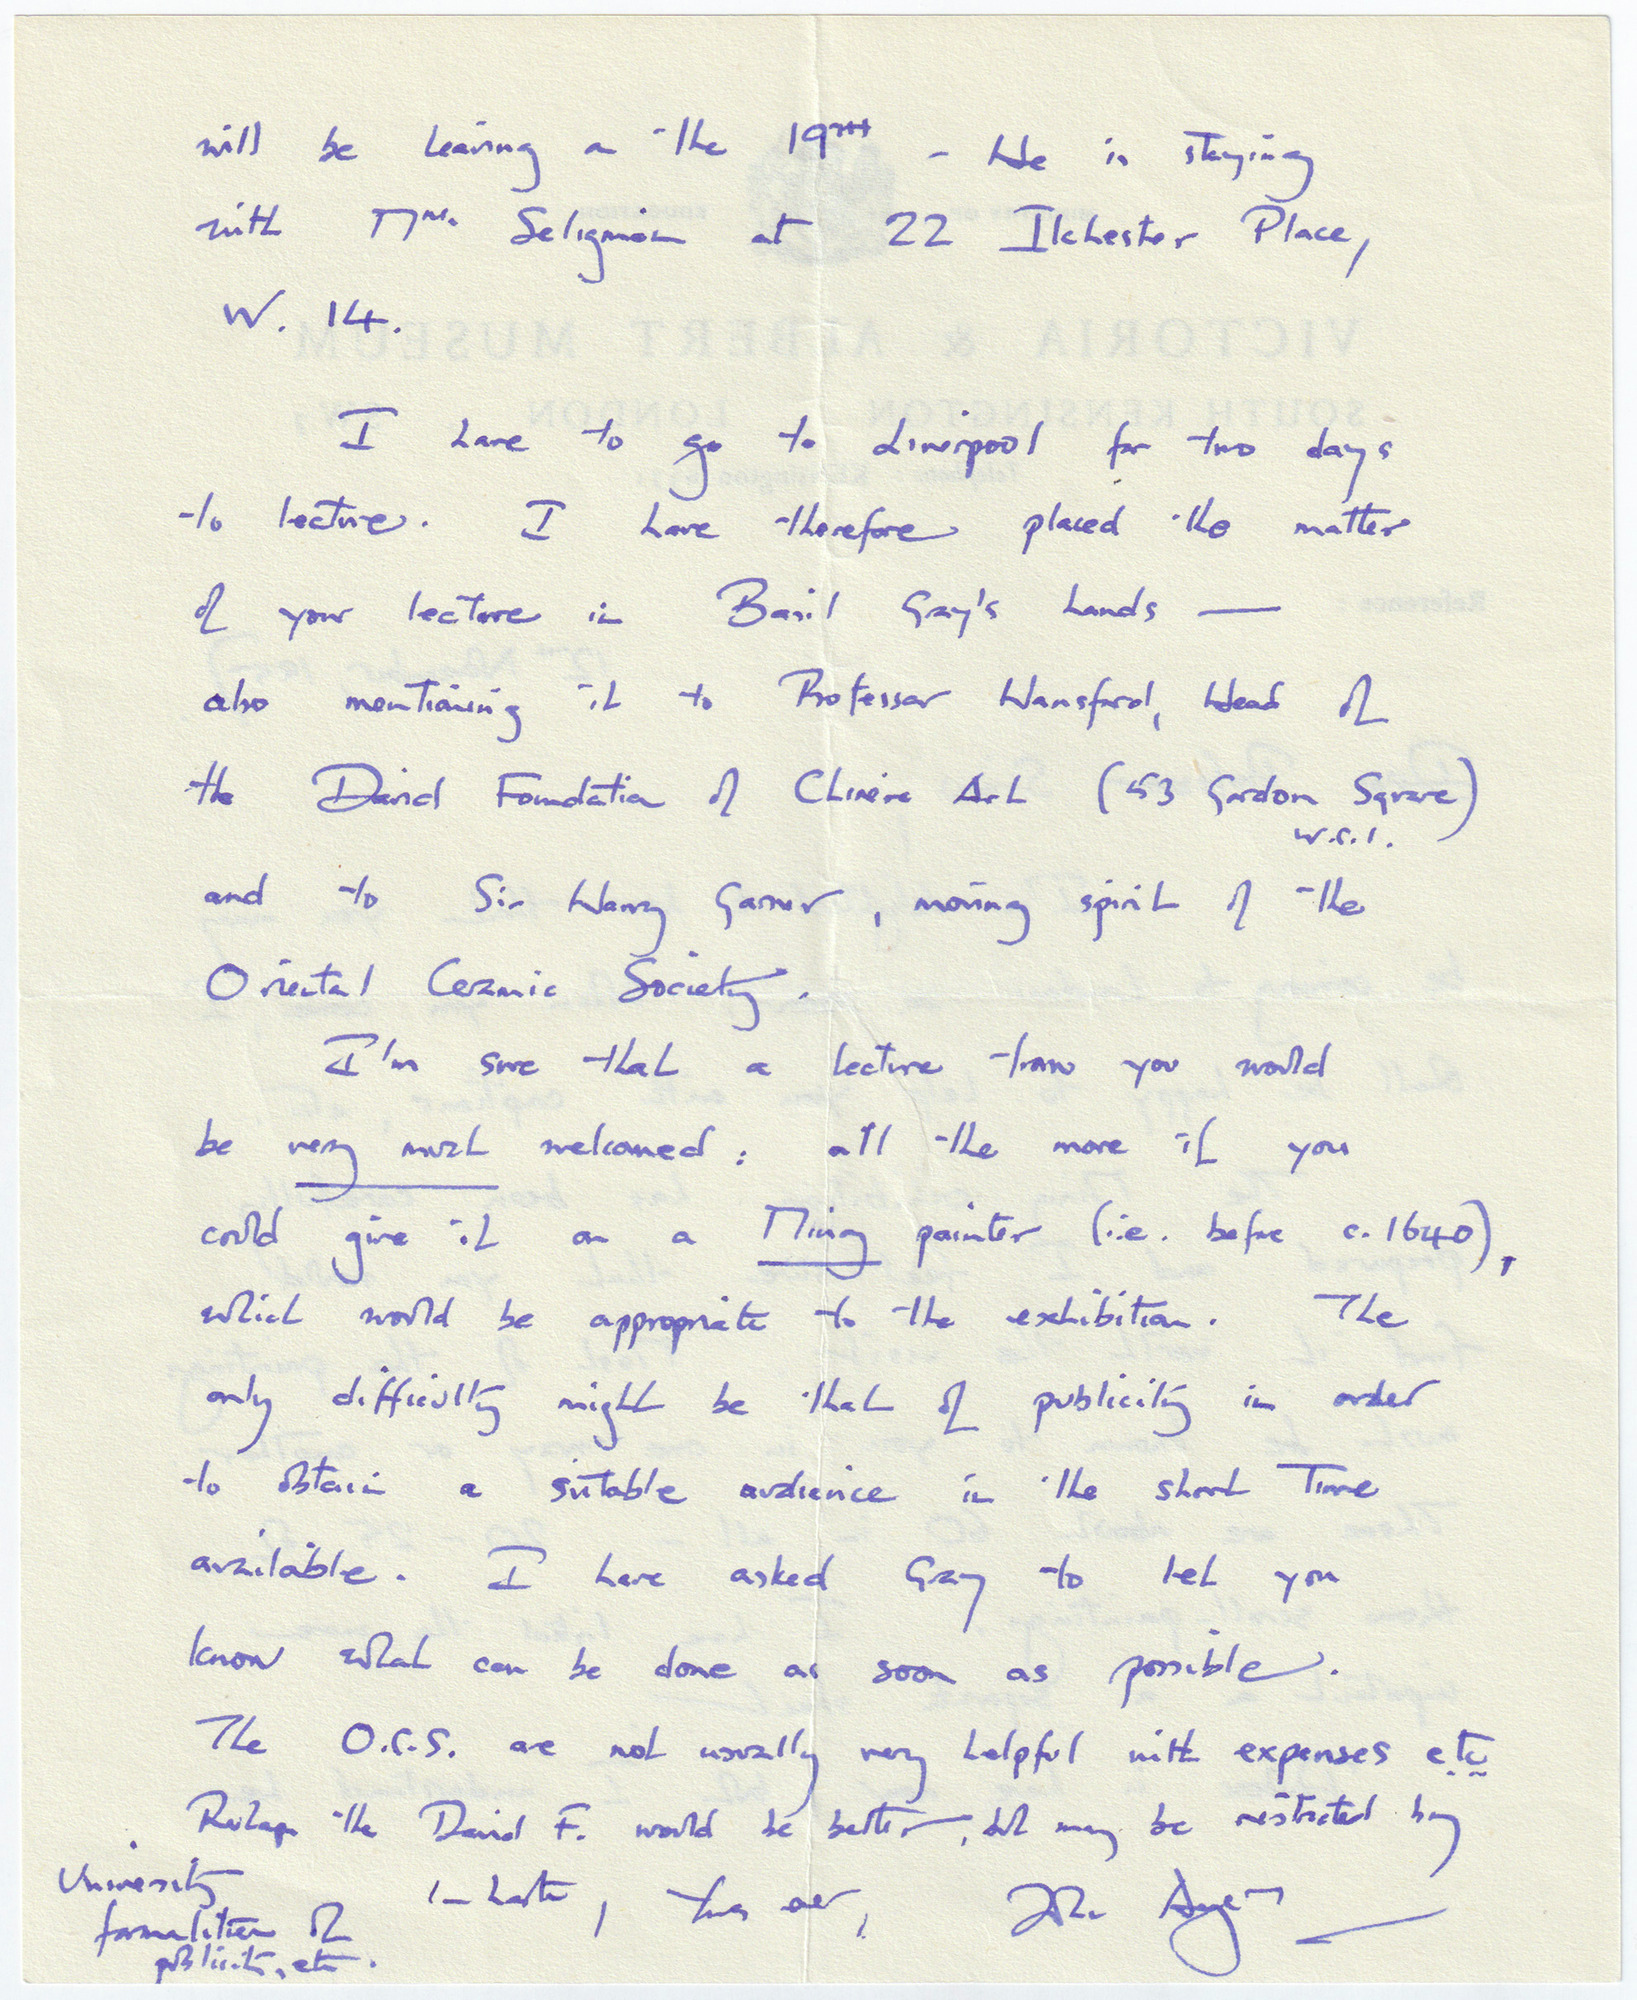 will be leaving on the 19TH – He is staying
with Mrs. Seligman at 22 Ilchester Place,
W. 14.
I have to go to Liverpool for two days
to lecture. I have therefore placed the matter
of your lecture in Basil Gray's hands —
also mentioning it to Professor Hansford, Head of
the David Foundation of Chinese Art (53 Gordon Square)
W.C.1.
and to Sir Harry Garner, moving spirit of the
Oriental Ceramic Society.
I'm sure that a lecture from you would
be very much welcomed: all the more if you
could give it on a Ming painter (i.e. before c. 1640),
which would be appropriate to the exhibition. The
only difficulty might be that of publicity in order
to obtain a suitable audience in the short time
available. I have asked Gray to let you
know what can be done as soon as possible.
The O.C.S. are not usually very helpful with expenses etc
Perhaps the David F. would be better, but may be restricted by
University
formalities of
publicity, etc.
In haste, Yours ever, John Ayers
VICTORIA & ALBERT MUSEUM
SOUTH KENSINGTON LONDON SW7
Reference